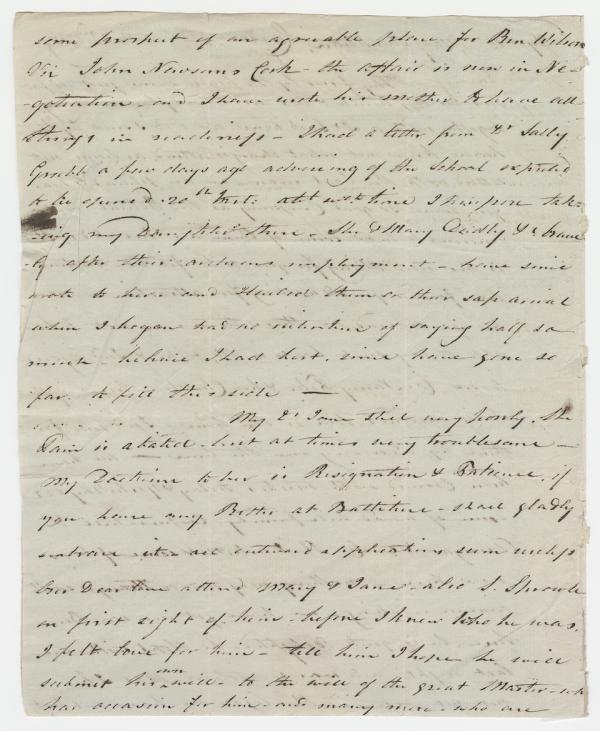 some prospect of an agreeable place for Ben Wilson
Viz John Newsoms Cork - the affair is now in Ne-
-gotiation - and I have wrote his mother to have all
things in readiness - I had a letter from Dr Sally
Grubb a few days ago advising of the School expected
to be opened 20th Inst: abt wch time I purpose tak-
-ing my Daughter there - She & Mary brave-
-ly after their arduous employment - have since
wrote to her and Hailed them on their safe arrival
when I began had no intention of saying half so
much - believe I had best, since have gone so
far to fill this side —
My Dr Jane still very poorly. the
Pain is abated - but at times very troublesome -
My Doctrine to her is Resignation & Patience, if
you have any Better at Ballitore - shall gladly
embrace it - all outward applications seem useless
Our Dear love attend Mary & Jane - also S. Sproule
on first sight of him - before I knew Who he was.
I felt love for him - tell him I hope he will
submit his own will - to the will of the great Master - wh
has occasion for him - and many more - who are